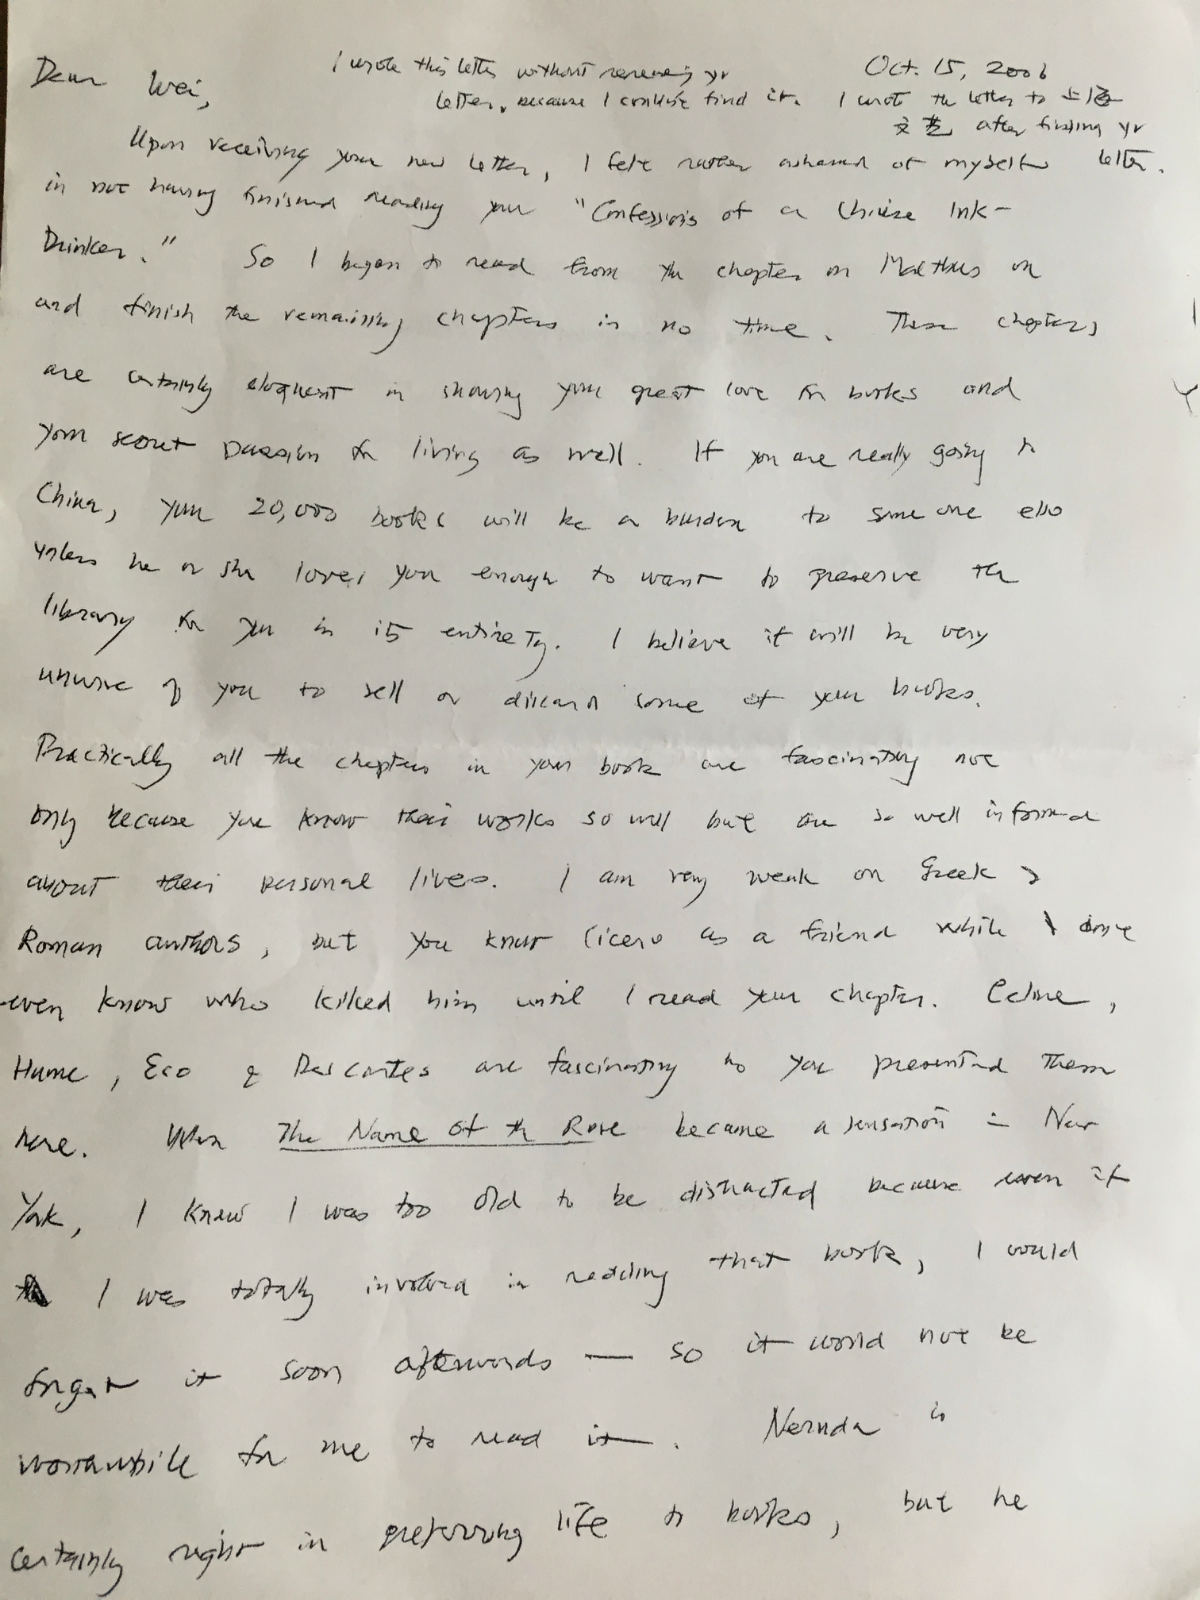 Dear Wei,
Oct. 15, 2006
I wrote this letter without rereading yr
letter, because I couldn't find it. I wrot the letter to 上海
文艺 after finding yr
letter.
Upon receiving your new letter, I felt rather ashamed of myself
in not having finished reading your "Confessions of a Chinese Ink-
Drinker." So I began to read from the chapter on Malthus on
and finish the remaining chapters in no time. These chapters
are certainly eloquent in showing your great love for books and
your secret passion for living as well. If you are really going to
China, your 20,000 books will be a burden to some one else
unless he or she loves you enough to want to preserve the
library for you in its entirety. I believe it will be very
unwise of you to sell or discard some of your books.
Practically all the chapters in your book are fascinating not
only because you know their works so well but are so well informed
about their personal lives. I am very weak on Greek &
Roman authors, but you know Cicero as a friend while I don't
even know who killed him until I read your chapter. Celine,
Hume, Eco & Descartes are fascinating as you presented them
here. When The Name of the Rose became a sensation in New
York, I knew I was too old to be distracted because even if
I was totally involved in reading that book, I would
forget it soon afterwards — so it would not be
worthwhile for me to read it. Neruda is
certainly right in preferring life to books, but he